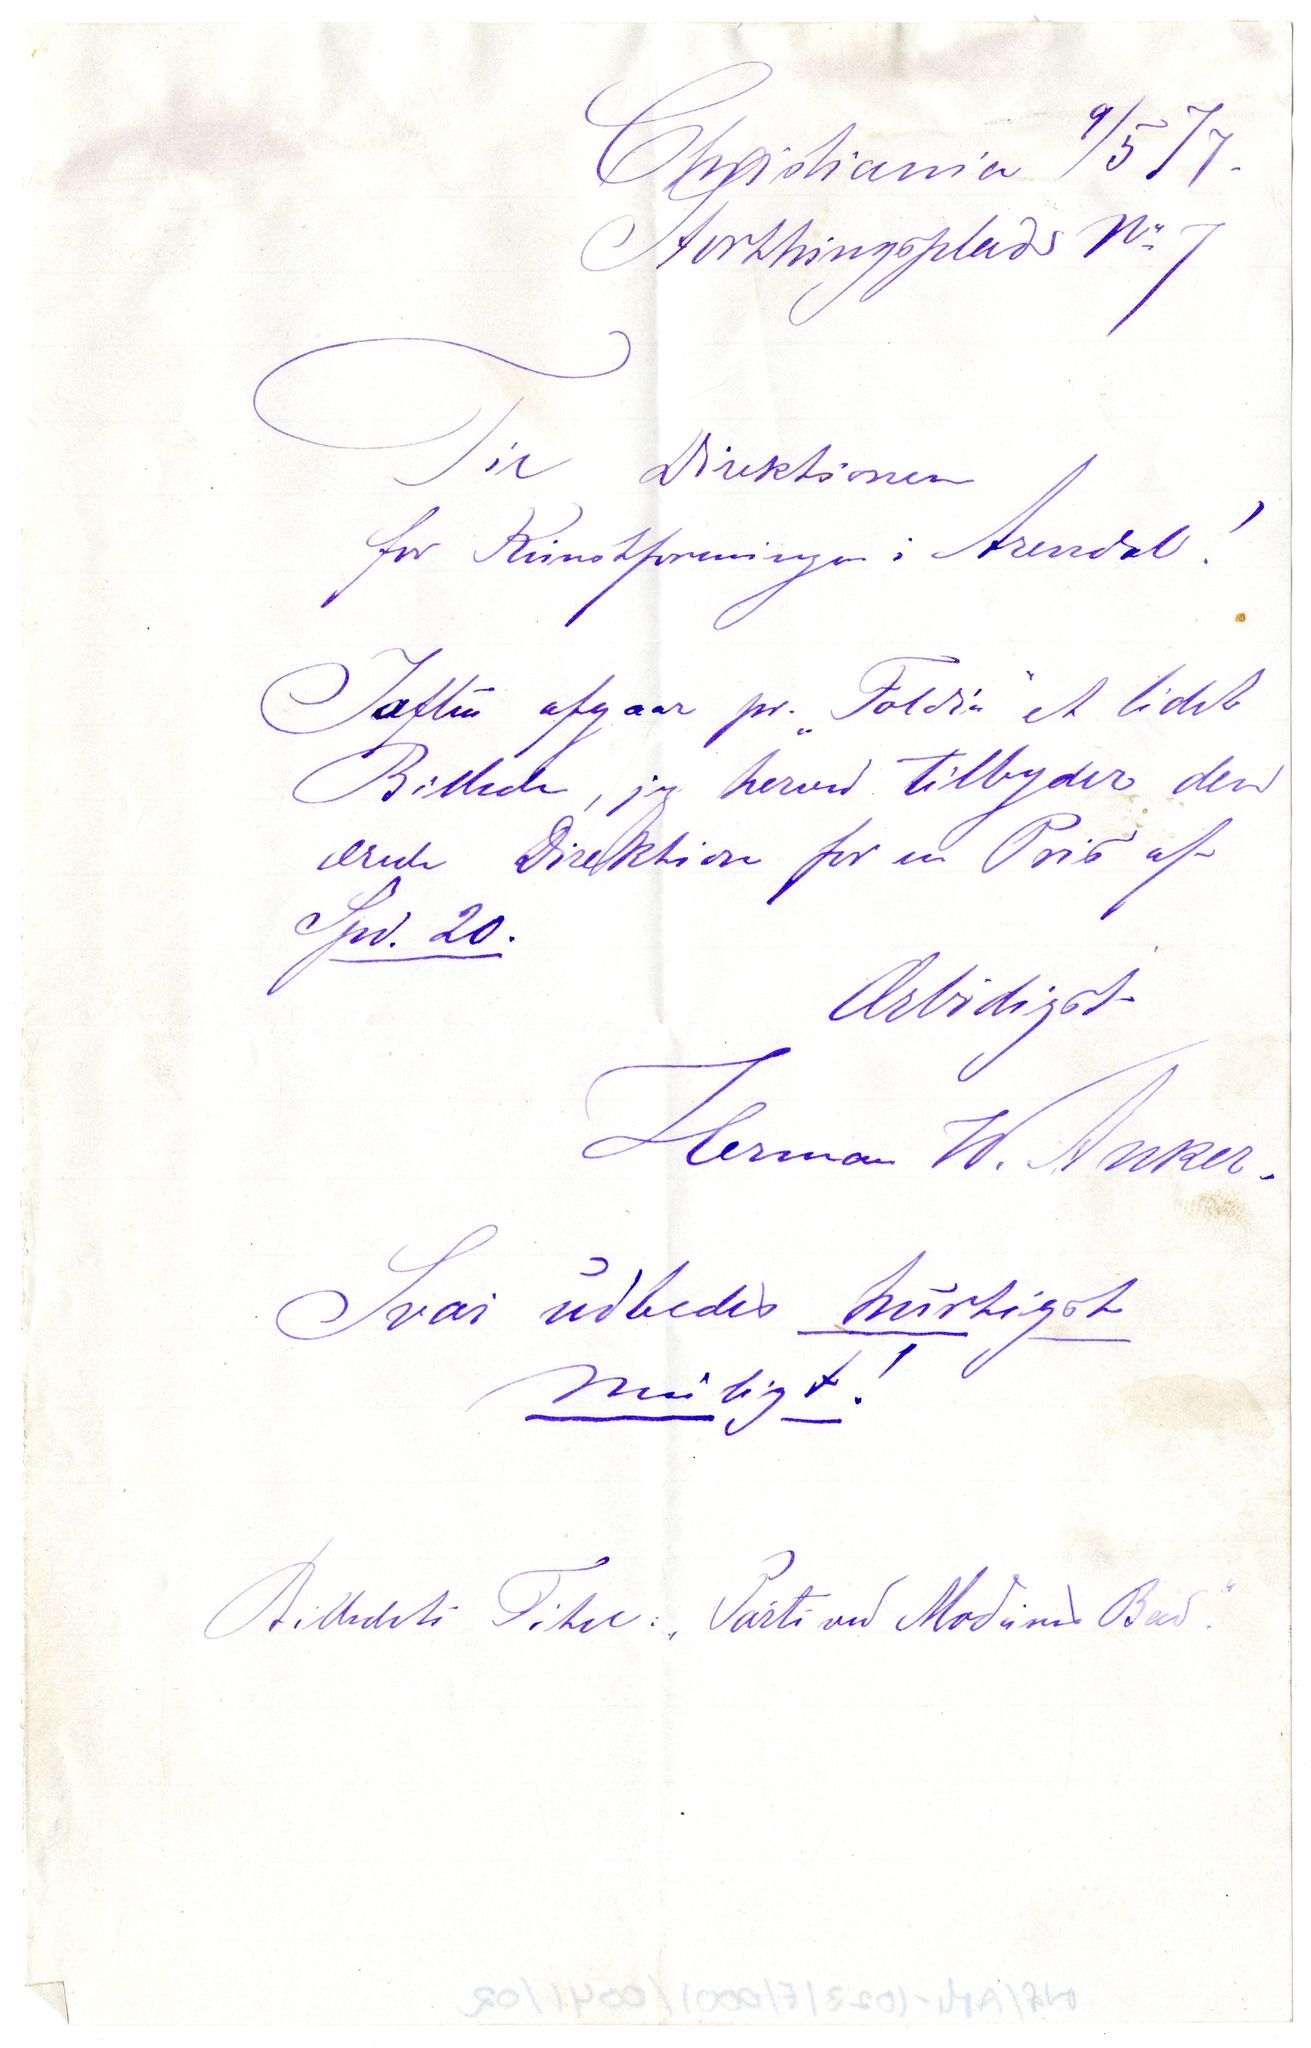 Christiania 9/5 77.
Storthingsplads No 7
Til Direktionen
for Kunstforeningen i Arendal!
Iaften afgaar pr. „Foldin" et lidet
Billede, jeg herved tilbyder den
ærede Direktion for en Pris af
Spd. 20.
Ærbødigst
Herman W. Anker.
Svar udbedes hurtigst
muligt!
Billedets Titel: „Parti ved Modums Bad."